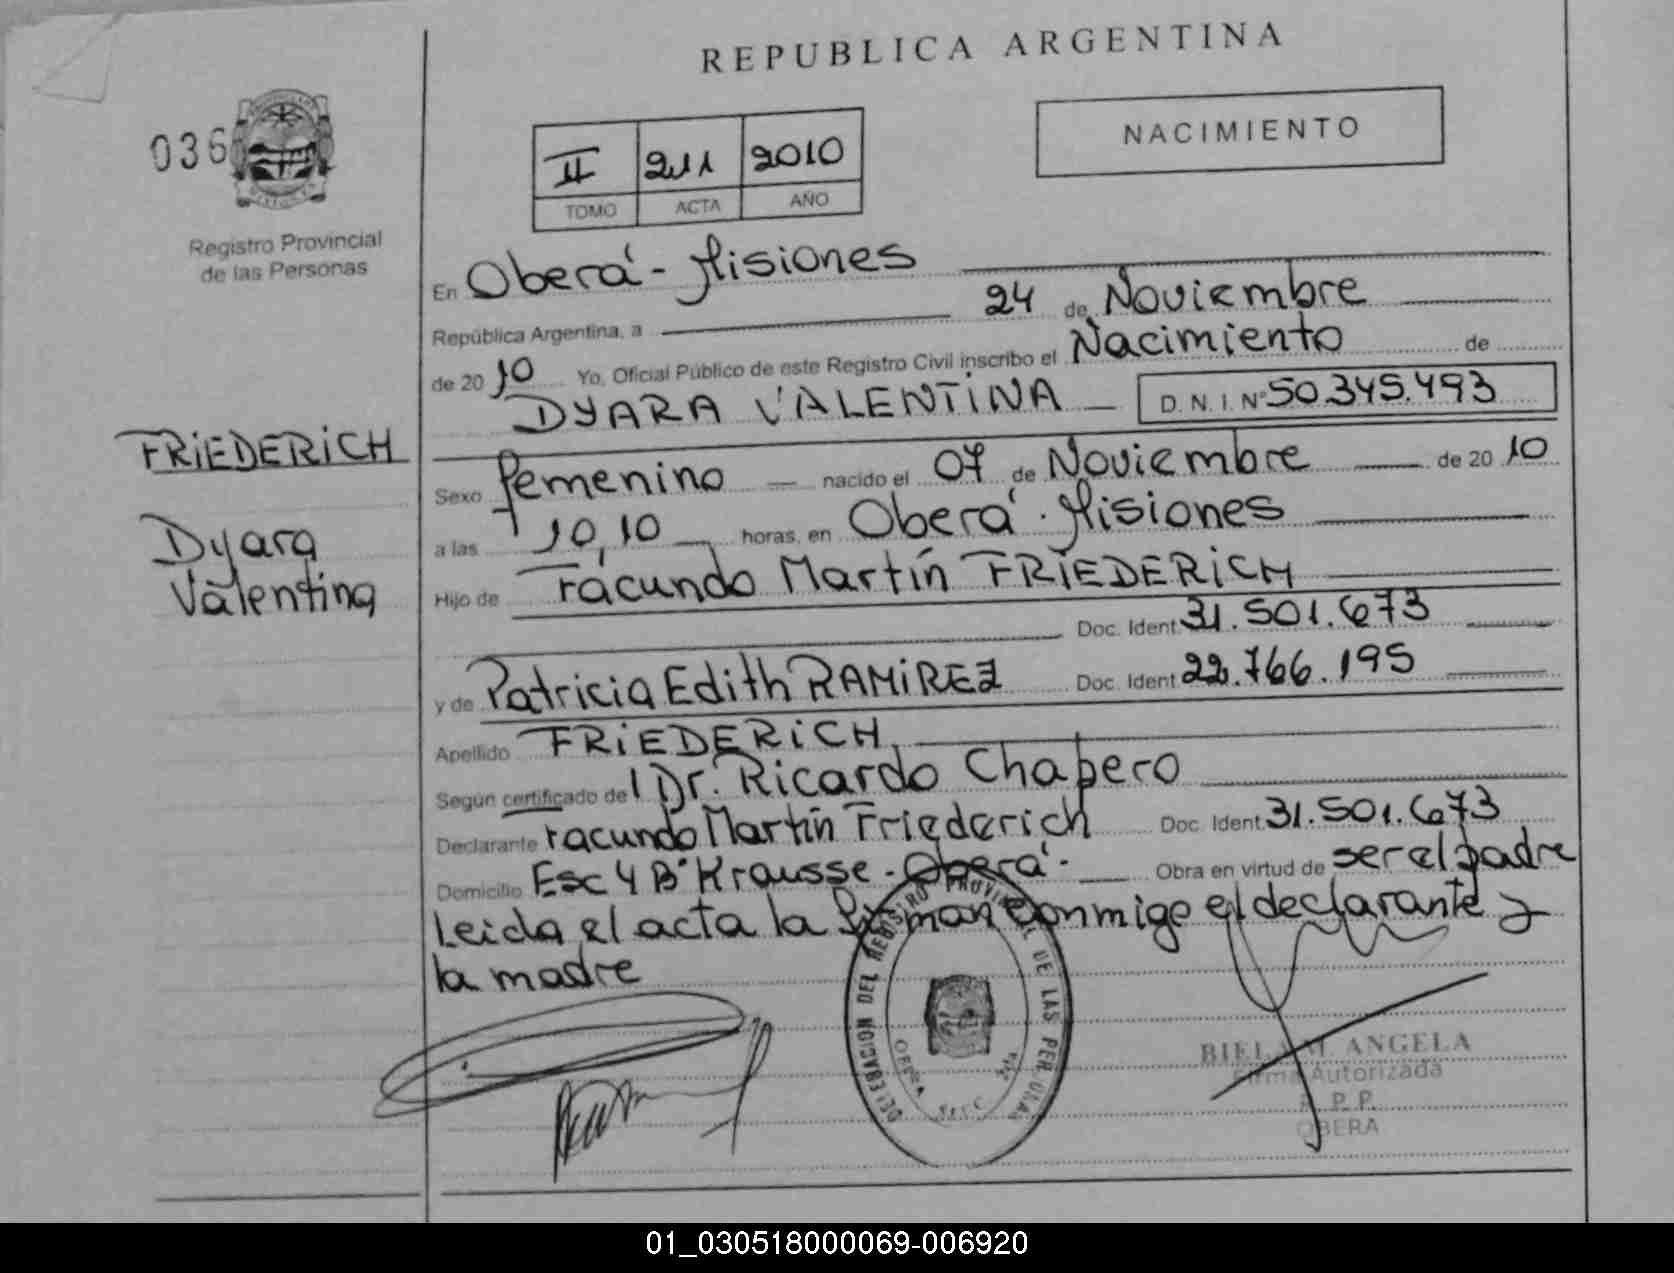 REPUBLICA ARGENTINA
NACIMIENTO
036
II 211 2010
TOMO ACTA AÑO
Registro Provincial
de las Personas
En Oberá - Misiones
República Argentina, a 24 de Noviembre
de 20 10 Yo, Oficial Público de este Registro Civil inscribo el Nacimiento de
DYARA VALENTINA D. N. I. Nº 50.345.493
FRIEDERICH
Dyara
Valentina
Sexo femenino nacido el 07 de Noviembre de 20 10
a las 10,10 horas, en Oberá - Misiones
Hijo de Facundo Martín FRIEDERICH
Doc. Ident. 31.501.673
y de Patricia Edith RAMIREZ Doc. Ident. 22.766.195
Apellido FRIEDERICH
Según certificado del Dr. Ricardo Chapero
Declarante Facundo Martín Friederich Doc. Ident. 31.501.673
Domicilio Esc 4 Bº Krausse - Oberá - Obra en virtud de ser el padre
Leida el acta la firman conmigo el declarante y
la madre
DELEGACION DEL REGISTRO PROVINCIAL DE LAS PERSONAS
OBERA SECC
BIELA M. ANGELA
Firma Autorizada
R. P. P.
OBERA
01_030518000069-006920